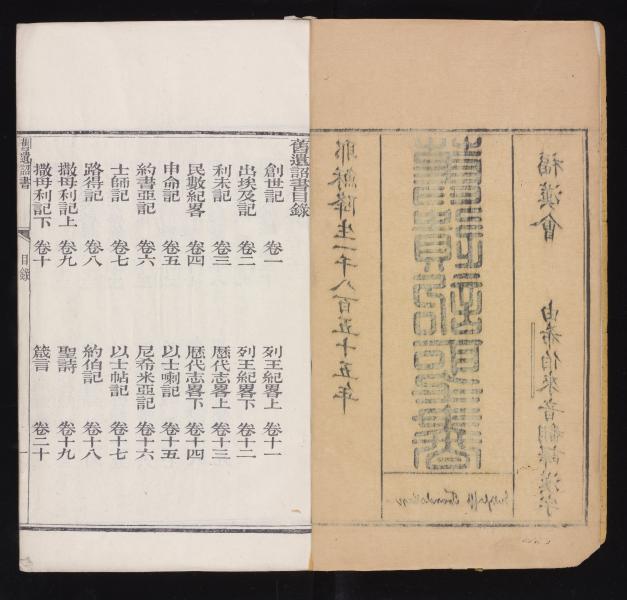 耶穌降生一千八百五十五年
舊遺詔聖書
Gutzlaff's Translation
福漢會
由希伯來音翻譯漢字
舊遺詔書目錄
創世記 卷一
出埃及記 卷二
利未記 卷三
民數紀畧 卷四
申命記 卷五
約書亞記 卷六
士師記 卷七
路得記 卷八
撒母利記上 卷九
撒母利記下 卷十
列王紀畧上 卷十一
列王紀畧下 卷十二
歷代志畧上 卷十三
歷代志畧下 卷十四
以士喇記 卷十五
尼希米亞記 卷十六
以士帖記 卷十七
約伯記 卷十八
聖詩 卷十九
箴言 卷二十
舊遺詔書
目錄
一